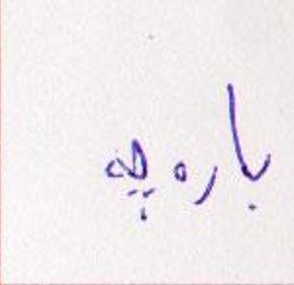 باره‌چه